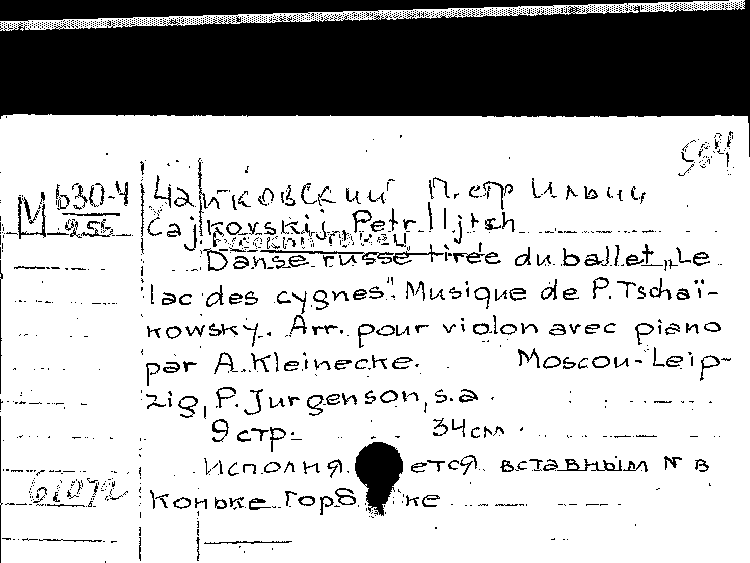 504
М 630-4
256
Чайковский Петр Ильич
Čajkovskij Petr Iljtsh
Русский танец
Danse russe tirée du ballet „Le
lac des cygnes". Musique de P. Tschaï-
kowsky. Arr. pour violon avec piano
par A. Kleinecke. Moscou-Leip-
zig, P. Jurgenson, s.a.
9 стр. 34 см.
Исполня ется вставным № в
Коньке Горб ке
61072